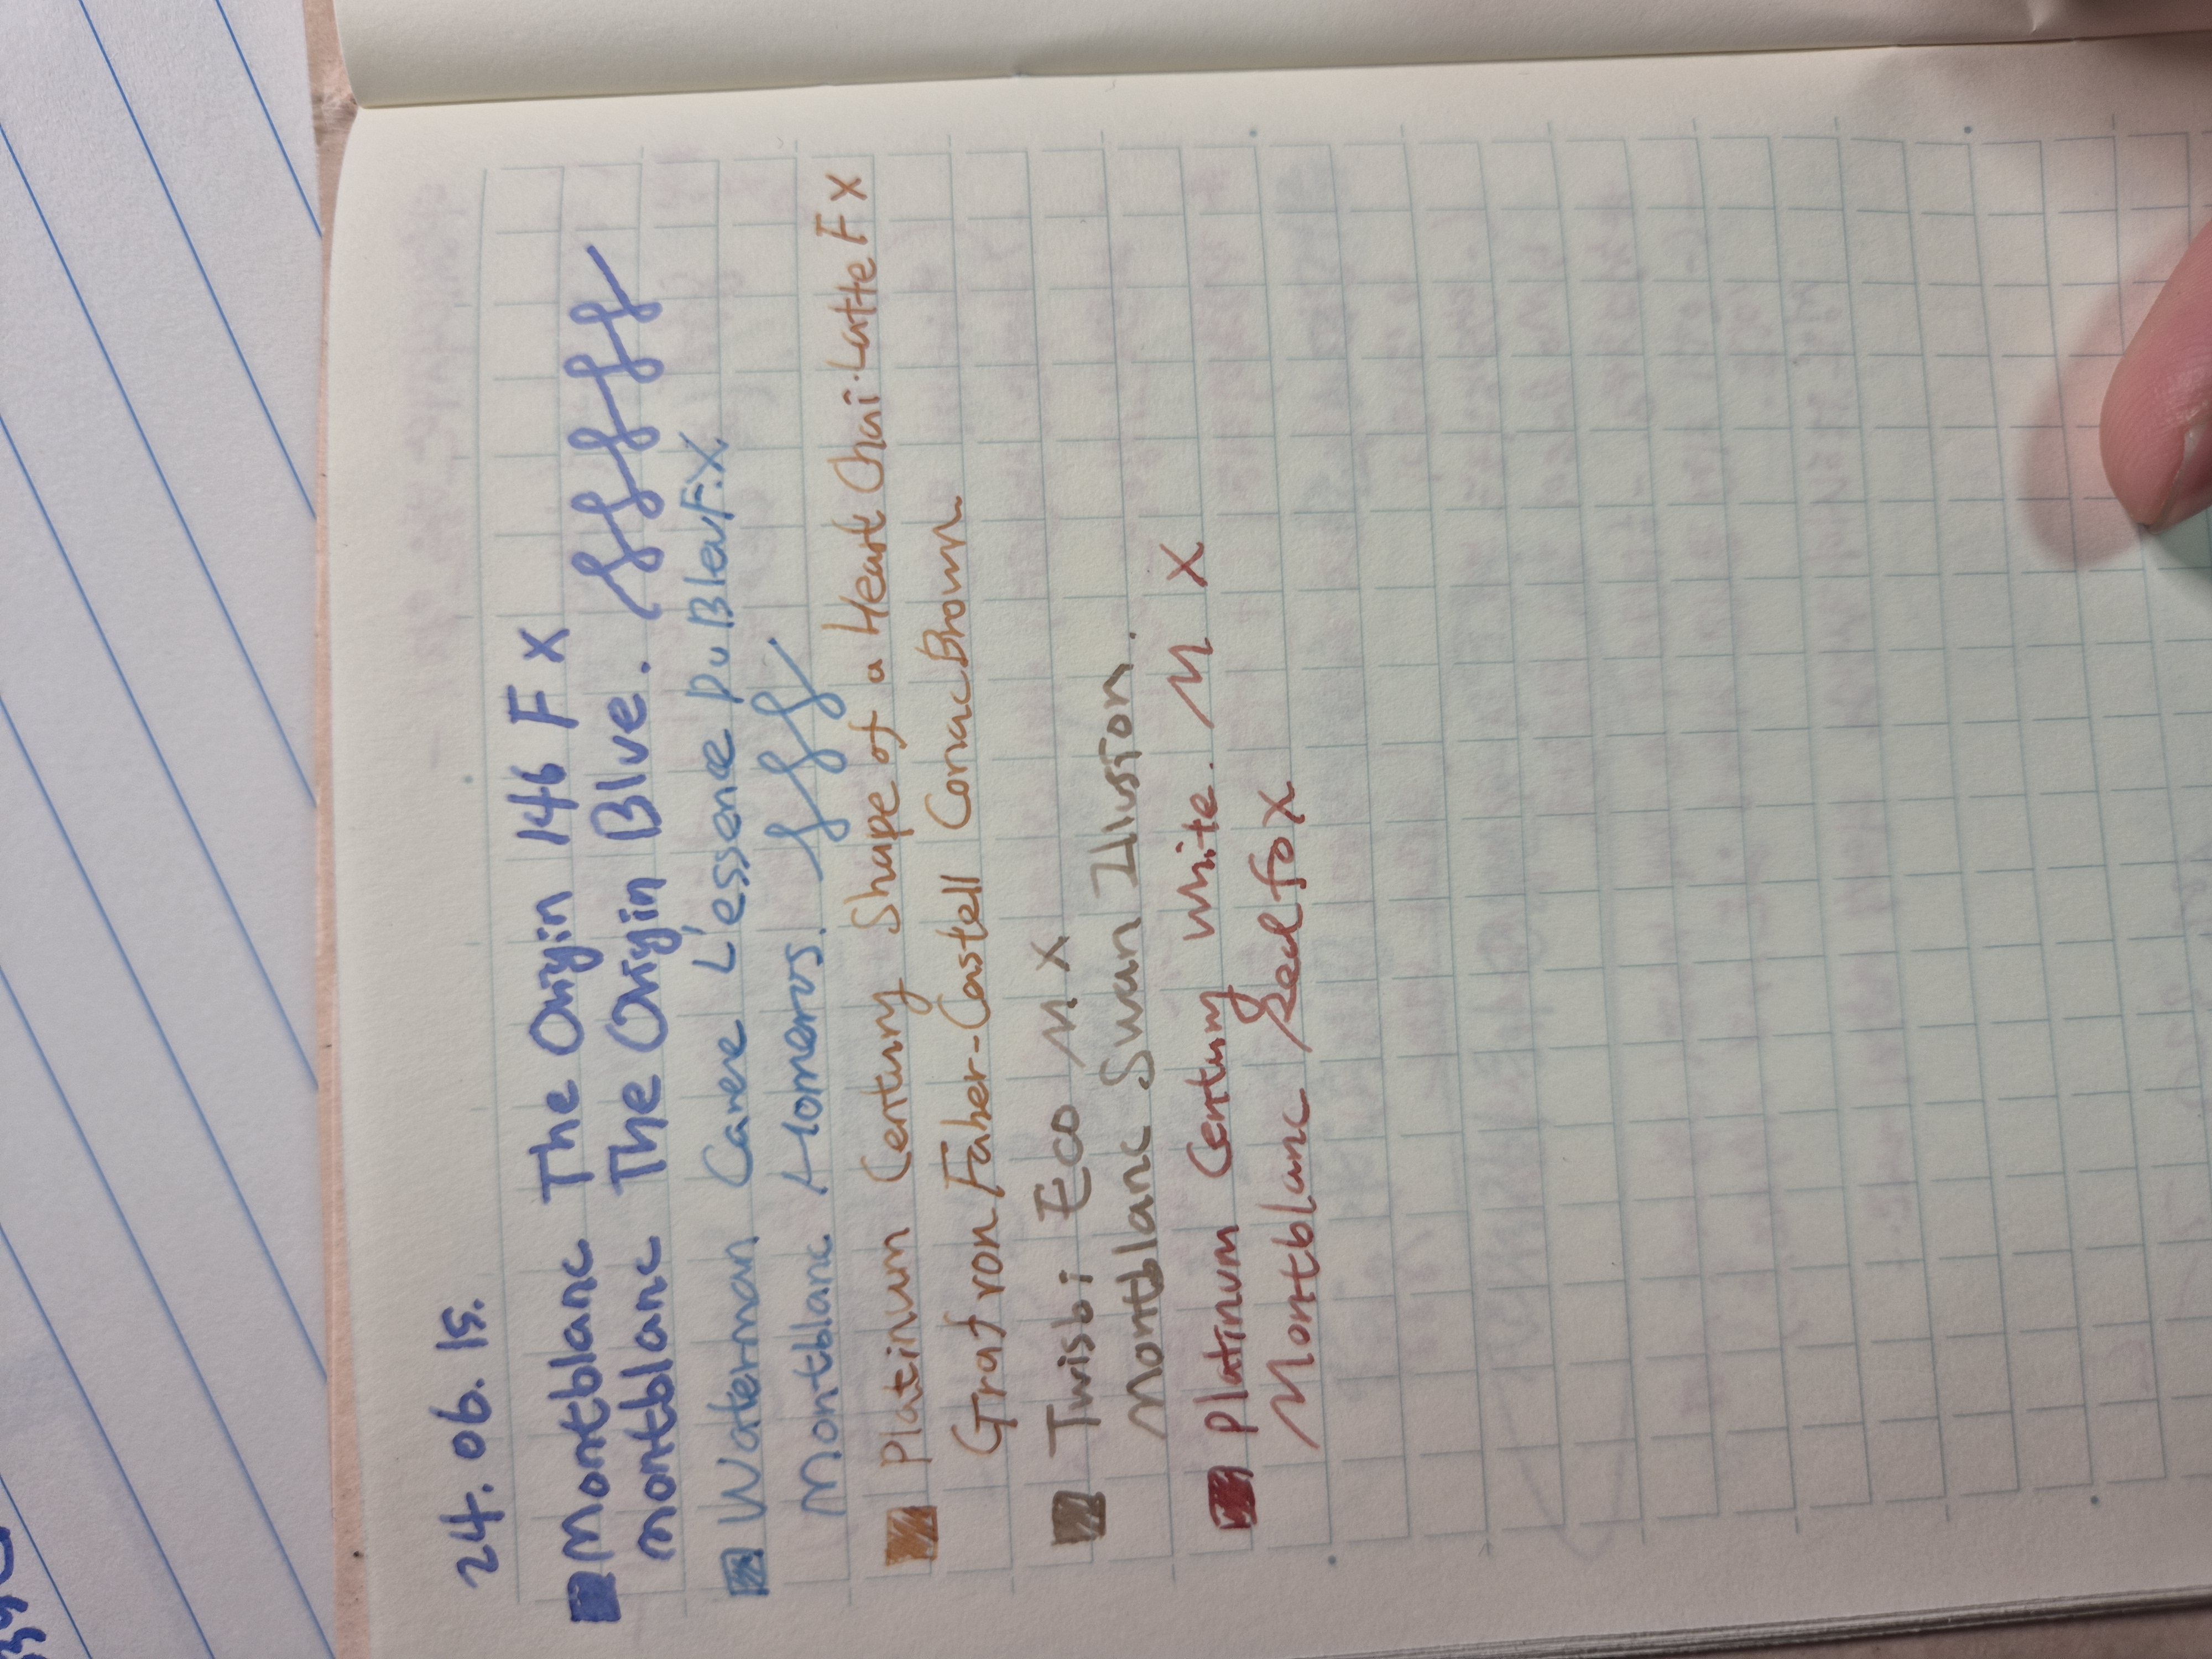 24. 06. 15.
Montblanc The Origin 146 F X
montblanc The Origin Blue.
Waterman Carene L'essence Du Bleu F. X
Montblanc Homerus.
Platinum Century Shape of a Heart Chai Latte F X
Graf von Faber-Castell Conac Brown
Twisbi Eco M X
Montblanc Swan Illusion.
Platinum Century White. M X
Montblanc Red fox